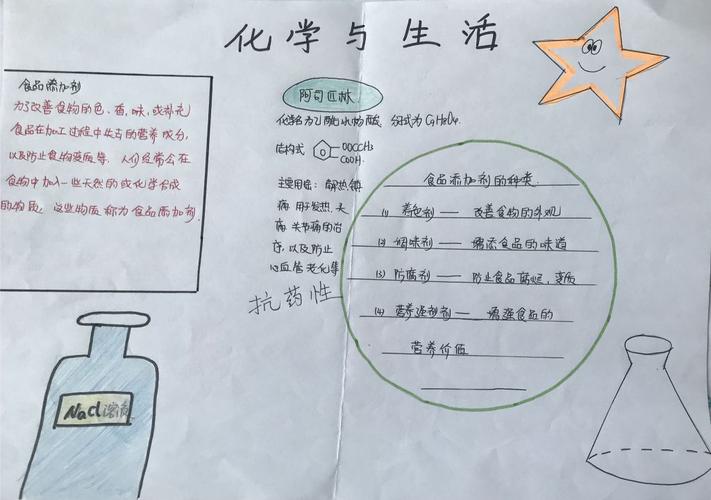 化学与生活
食品添加剂
为了改善食物的色、香、味、或补充
食品在加工过程中失去的营养成分,
以及防止食物变质等,人们经常会在
食物中加入一些天然的或化学合成
的物质,这些物质称为食品添加剂.
阿司匹林
化学名为乙酰水杨酸,分子式为C9H8O4.
结构式
OOCCH3
COOH.
主要用途:解热镇
痛,用于发热,头
痛,关节痛的治
疗,以及防止
心血管老化等
抗药性
食品添加剂的种类.
(1) 着色剂 —— 改善食物的外观
(2) 调味剂 —— 增添食品的味道
(3) 防腐剂 —— 防止食品腐烂、变质
(4) 营养强化剂 —— 增强食品的
营养价值
NaCl溶液